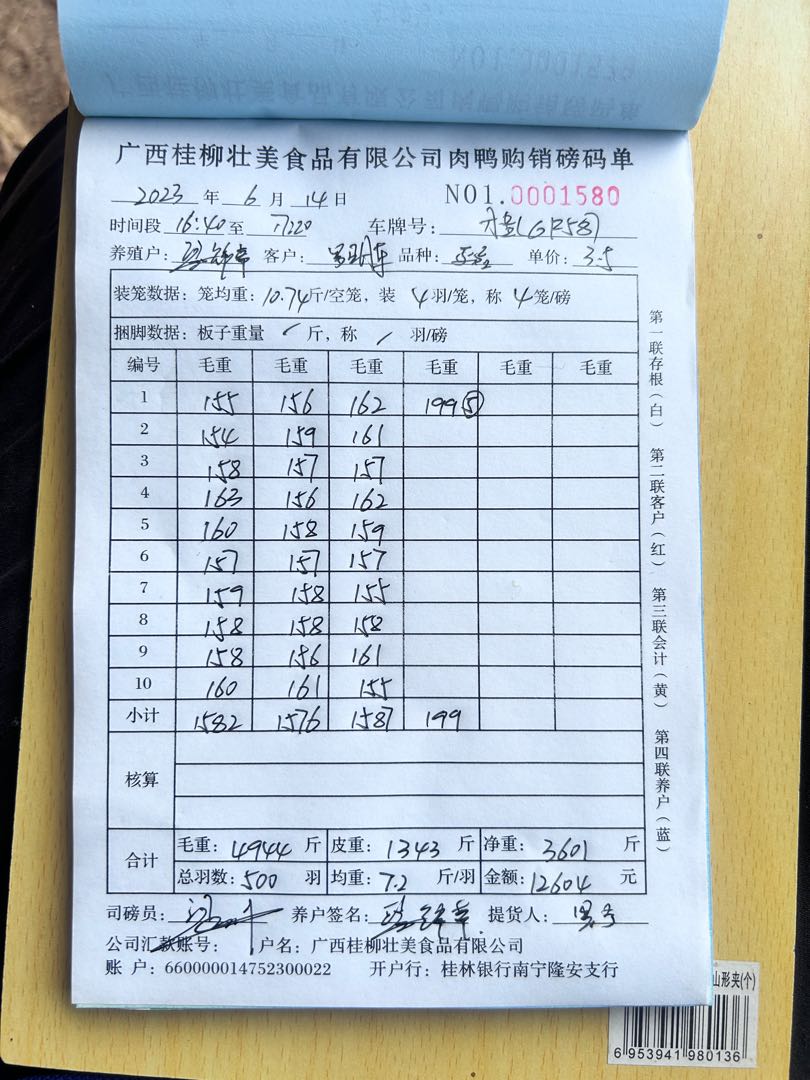 广西桂柳壮美食品有限公司肉鸭购销磅码单
2023 年 6 月 14 日 NO1.0001580
时间段 16:40 至 车牌号:
养殖户: 客户: 品种: 单价: 3.5
装笼数据: 笼均重: 10.74 斤/空笼, 装 4 羽/笼, 称 4 笼/磅
捆脚数据: 板子重量 / 斤, 称 / 羽/磅
编号 毛重 毛重 毛重 毛重 毛重 毛重
1 155 156 162 199⑤
2 154 159 161
3 158 157 157
4 163 156 162
5 160 158 159
6 157 157 157
7 159 158 155
8 158 158 158
9 158 156 161
10 160 161 155
小计 1582 1576 1587 199
核算
合计 毛重: 4944 斤 皮重: 1343 斤 净重: 3601 斤
总羽数: 500 羽 均重: 7.2 斤/羽 金额: 12604 元
司磅员: 养户签名: 提货人:
公司汇款账号: 户名: 广西桂柳壮美食品有限公司
账 户: 660000014752300022 开户行: 桂林银行南宁隆安支行
第一联存根(白) 第二联客户(红) 第三联会计(黄) 第四联养户(蓝)
山形夹(个)
6 953941 980136